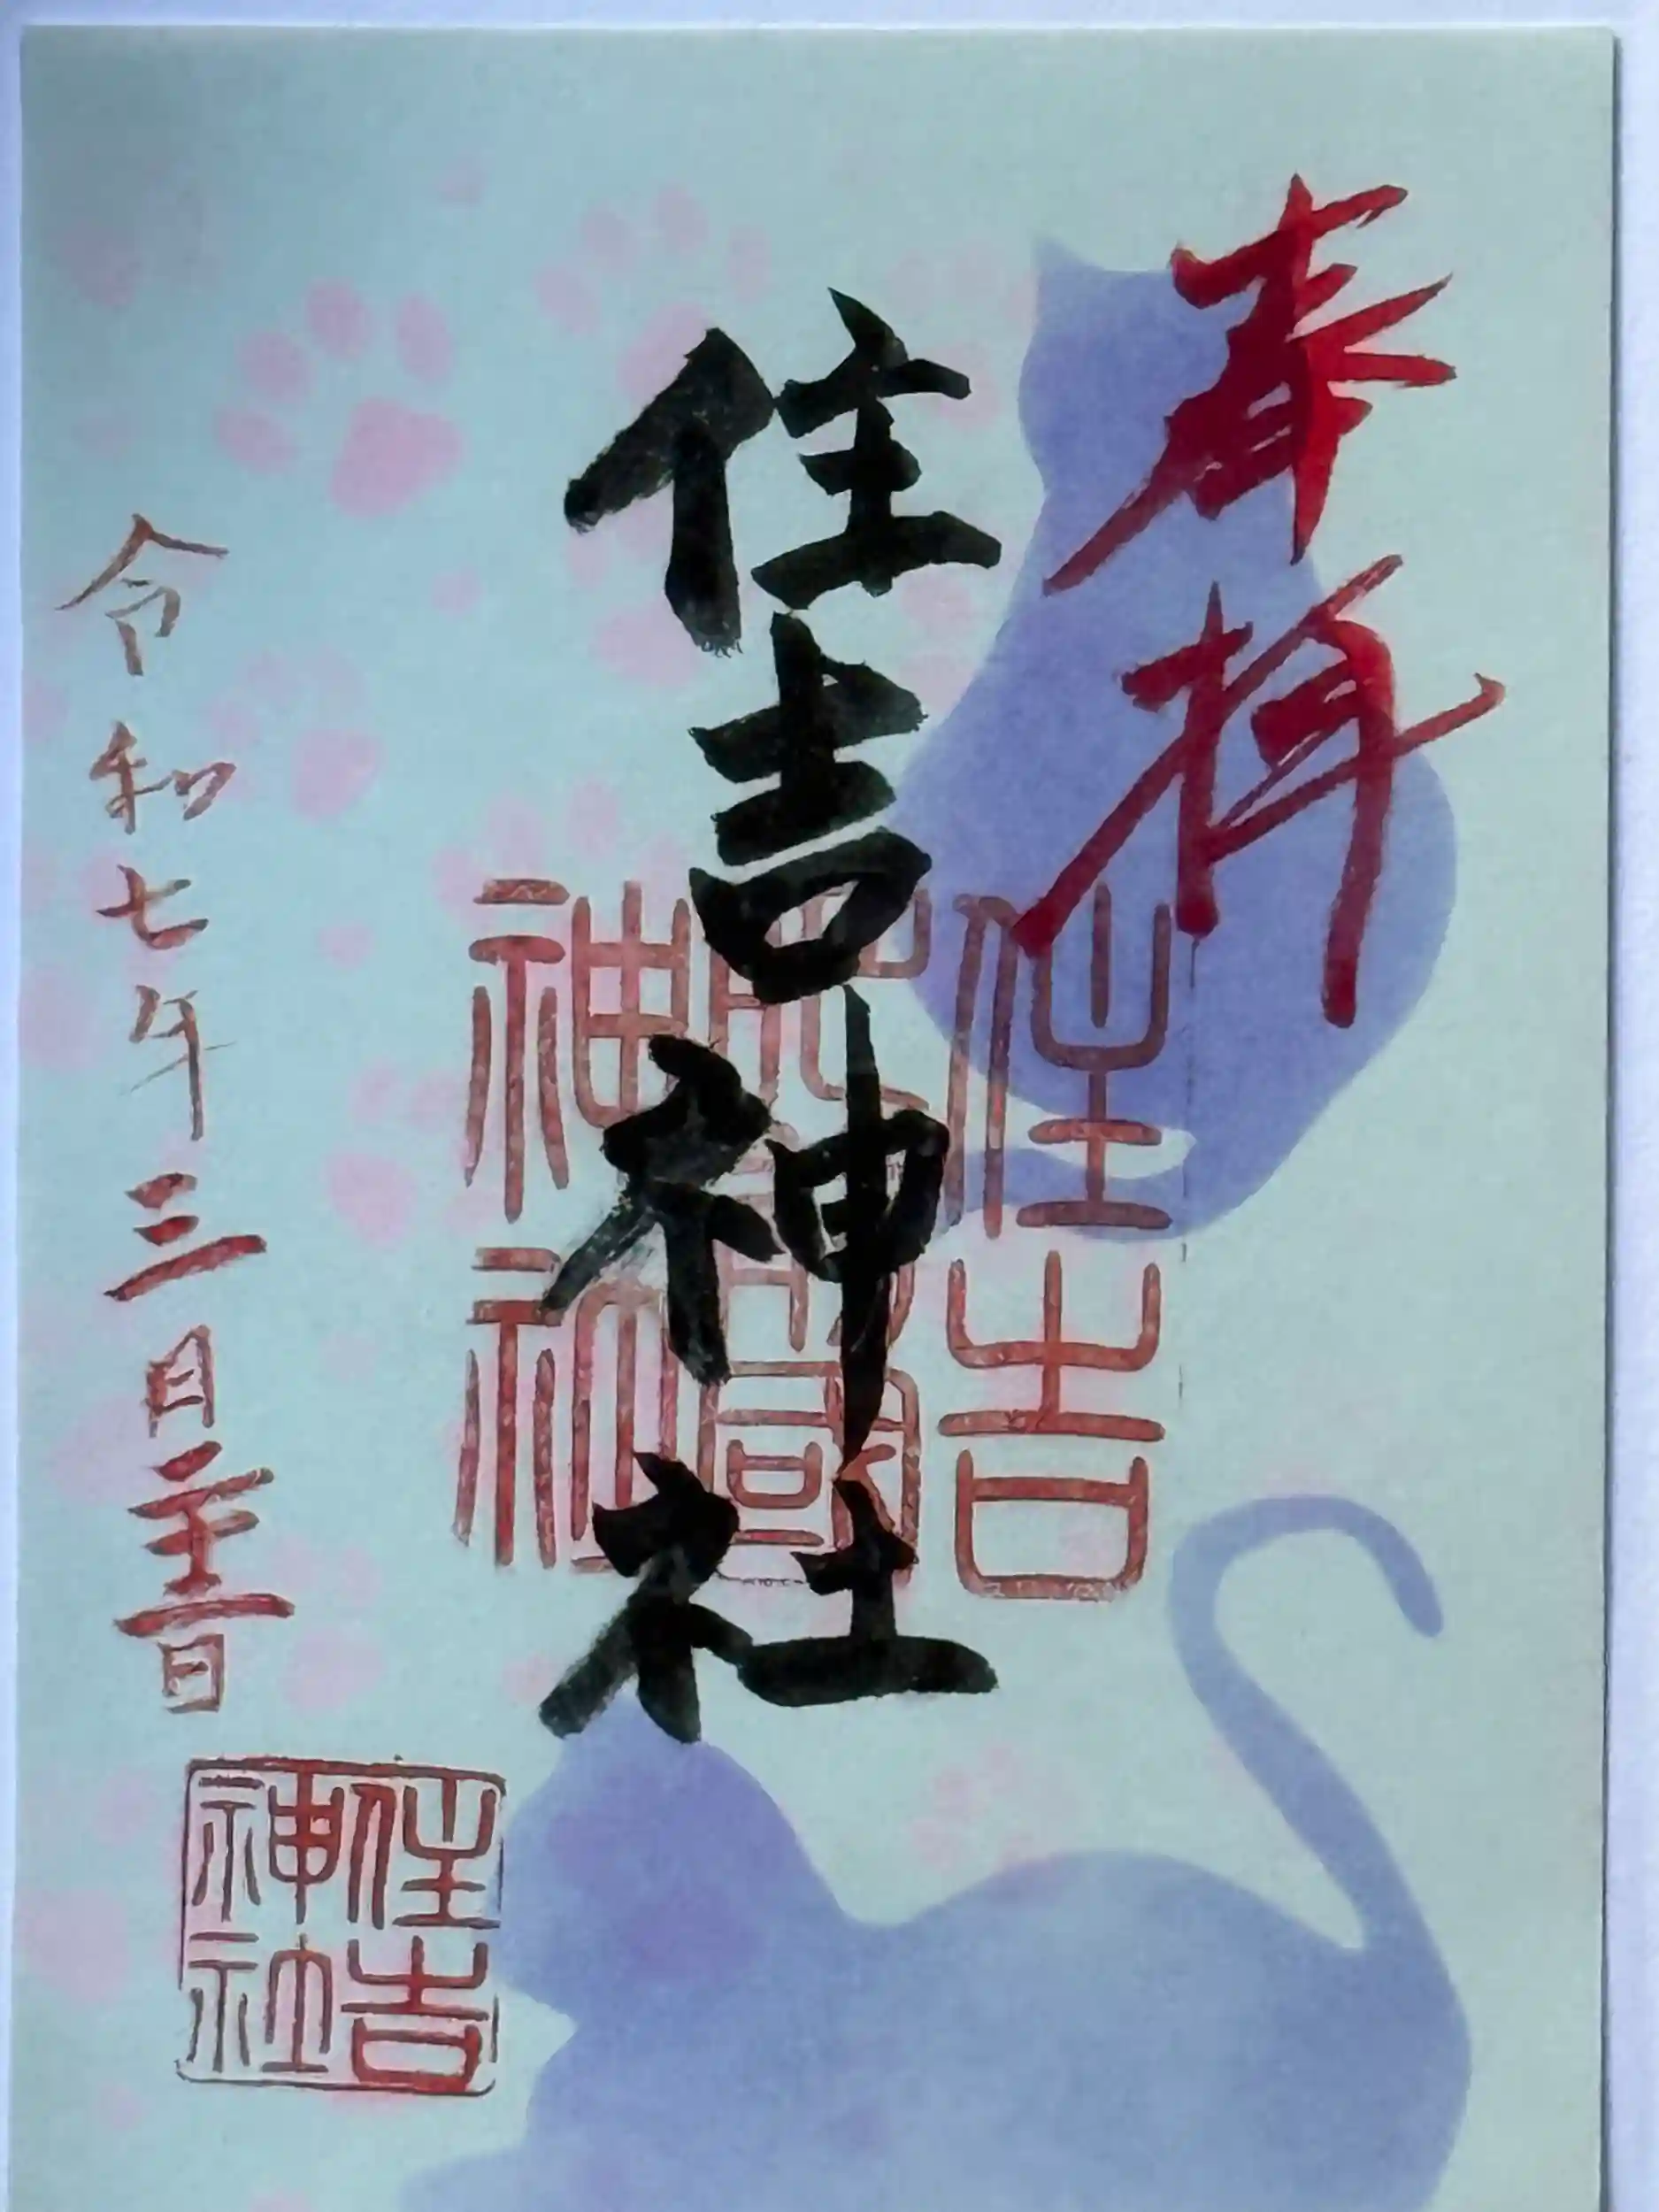 奉拝
住吉神社
住吉
神社
令和七年三月二十二日
住吉
神社